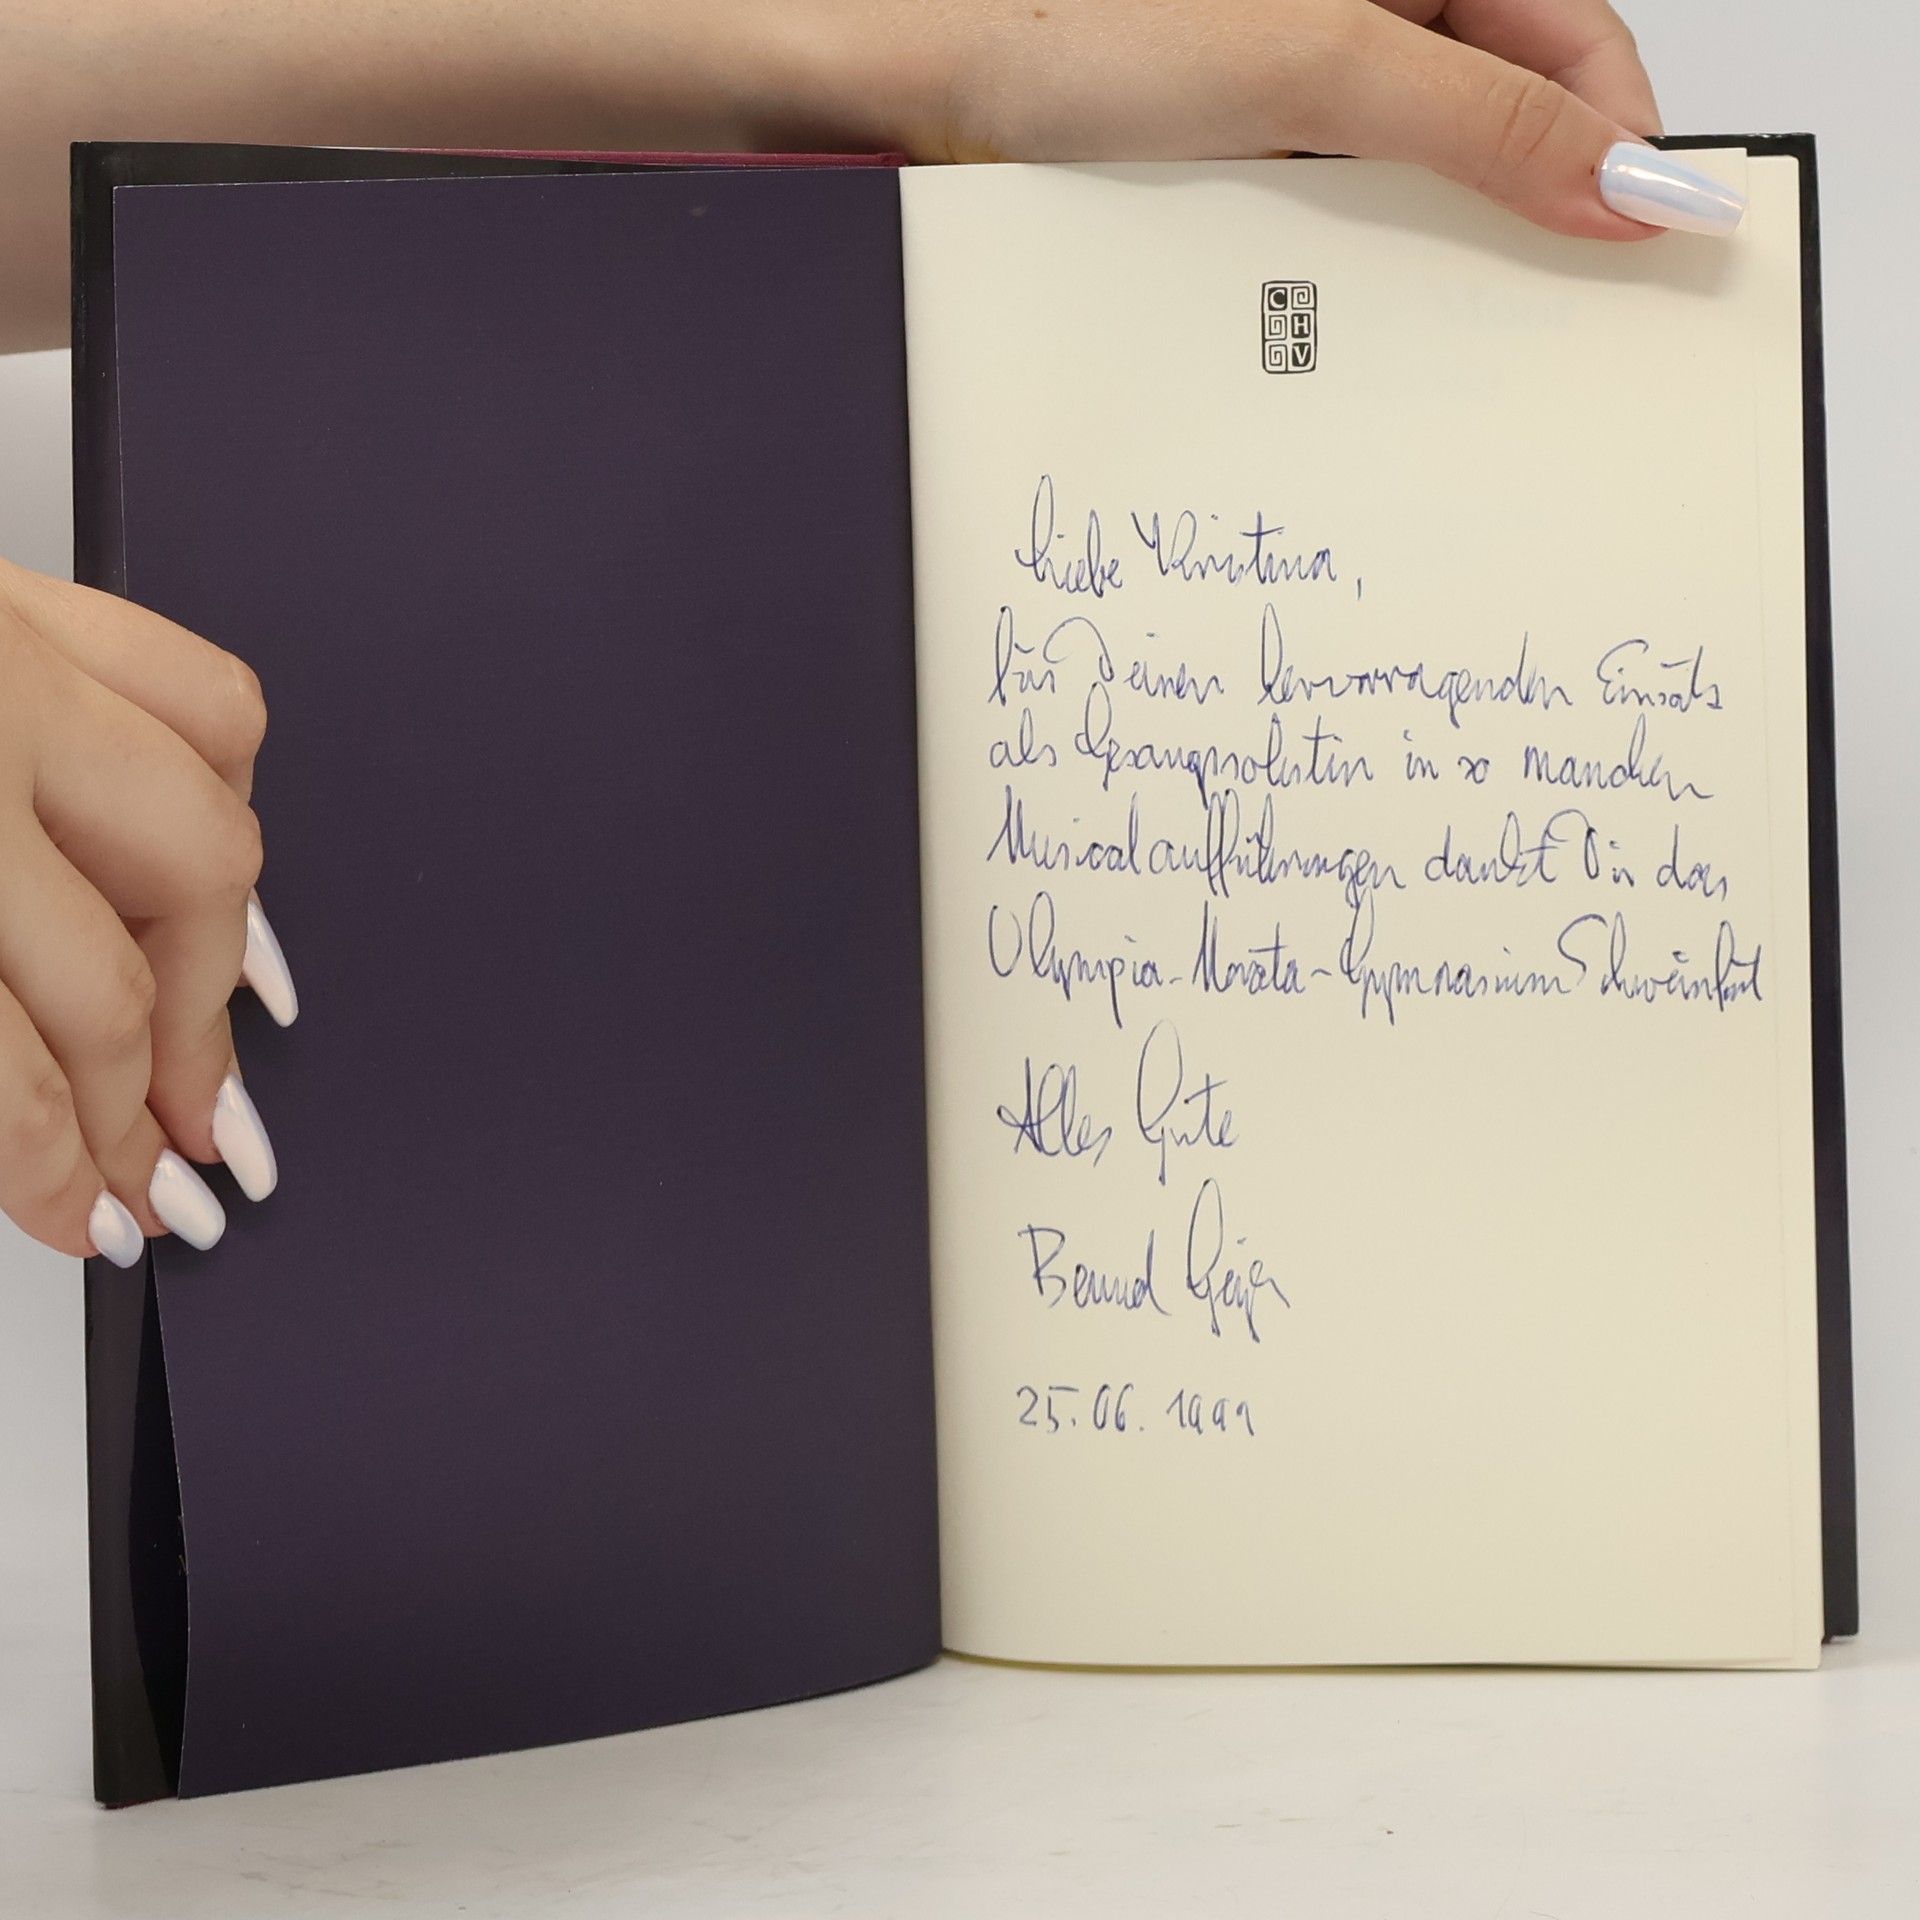 C
H
V
Liebe Kristina,
für Deinen hervorragenden Einsatz
als Gesangssolistin in so manchen
Musicalaufführungen dankt Dir das
Olympia-Morata-Gymnasium Schweinfurt
Alles Gute
Bernd
25.06.1999